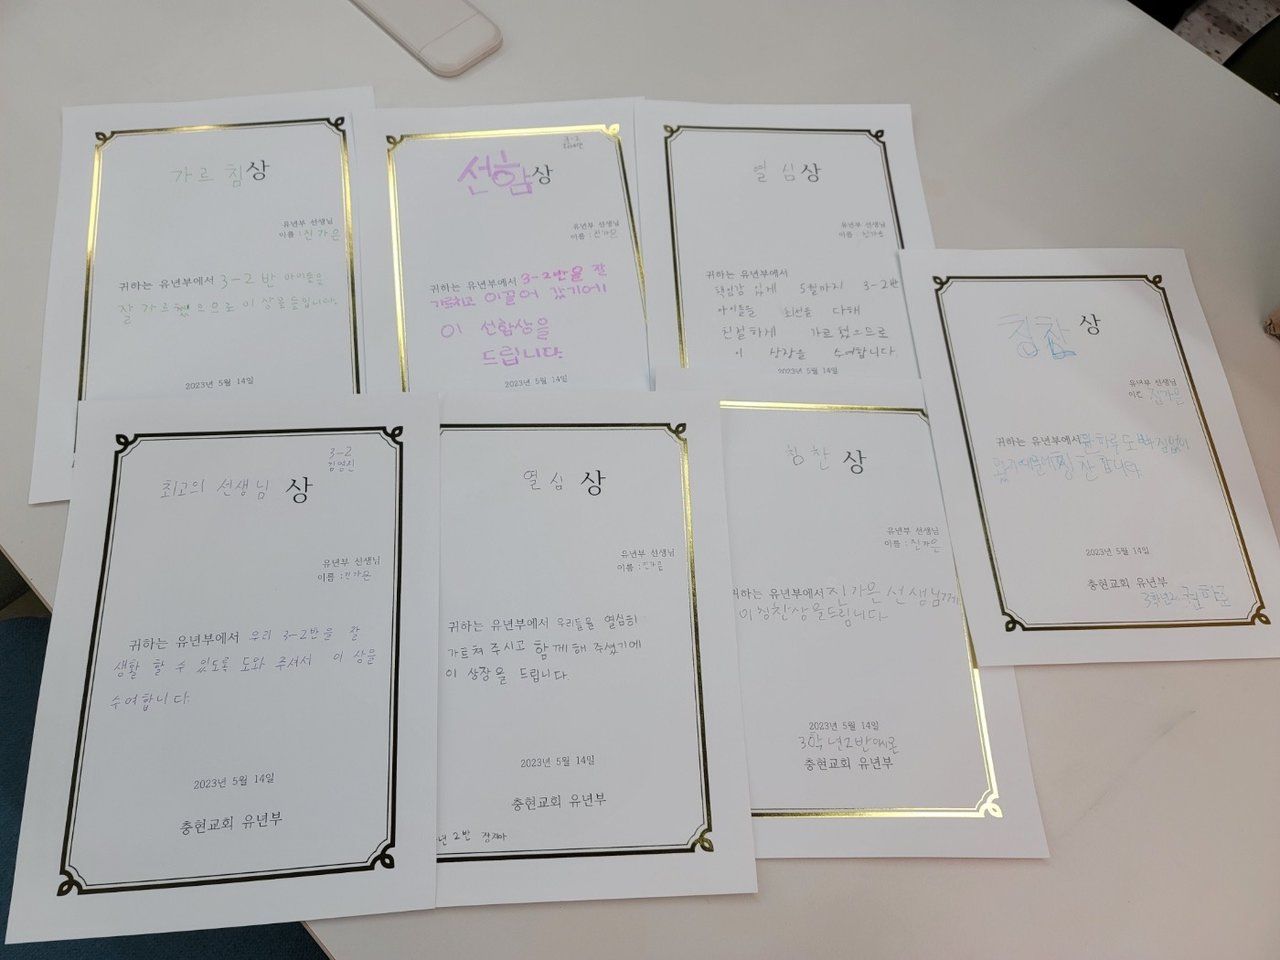 가르침상
유년부 선생님
이름 : 진가은
귀하는 유년부에서 3-2 반 아이들을
잘 가르쳤으므로 이 상을
2023년 5월 14일
3-2
선함상
유년부 선생님
이름 : 진가은
귀하는 유년부에서 3-2반을 잘
가르치고 이끌어 갔기에
이 선함상을
드립니다.
2023년 5월 14일
열심상
유년부 선생님
이름 : 진가은
귀하는 유년부에서
책임감 있게 5월까지 3-2반
아이들을 최선을 다해
친절하게 가르쳤으므로
이 상장을 수여합니다.
2023년 5월 14일
칭찬상
유년부 선생님
진가은
귀하는 유년부에서 하루도 빠짐없이
칭찬합니다
2023년 5월 14일
충현교회 유년부
3학년2
3-2
김영진
최고의 선생님 상
유년부 선생님
이름 : 진가은
귀하는 유년부에서 우리 3-2반을 잘
생활 할 수 있도록 도와 주셔서 이 상을
수여합니다.
2023년 5월 14일
충현교회 유년부
열심 상
유년부 선생님
이름 : 진가은
귀하는 유년부에서 우리들을 열심히
가르쳐 주시고 함께해 주셨기에
이 상장을 드립니다.
2023년 5월 14일
충현교회 유년부
년 2반 장지아
칭찬 상
유년부 선생님
이름 : 진가은
귀하는 유년부에서 진가은 선생님께
이 칭찬상을드립니다
2023년 5월 14일
3학년2반
충현교회 유년부